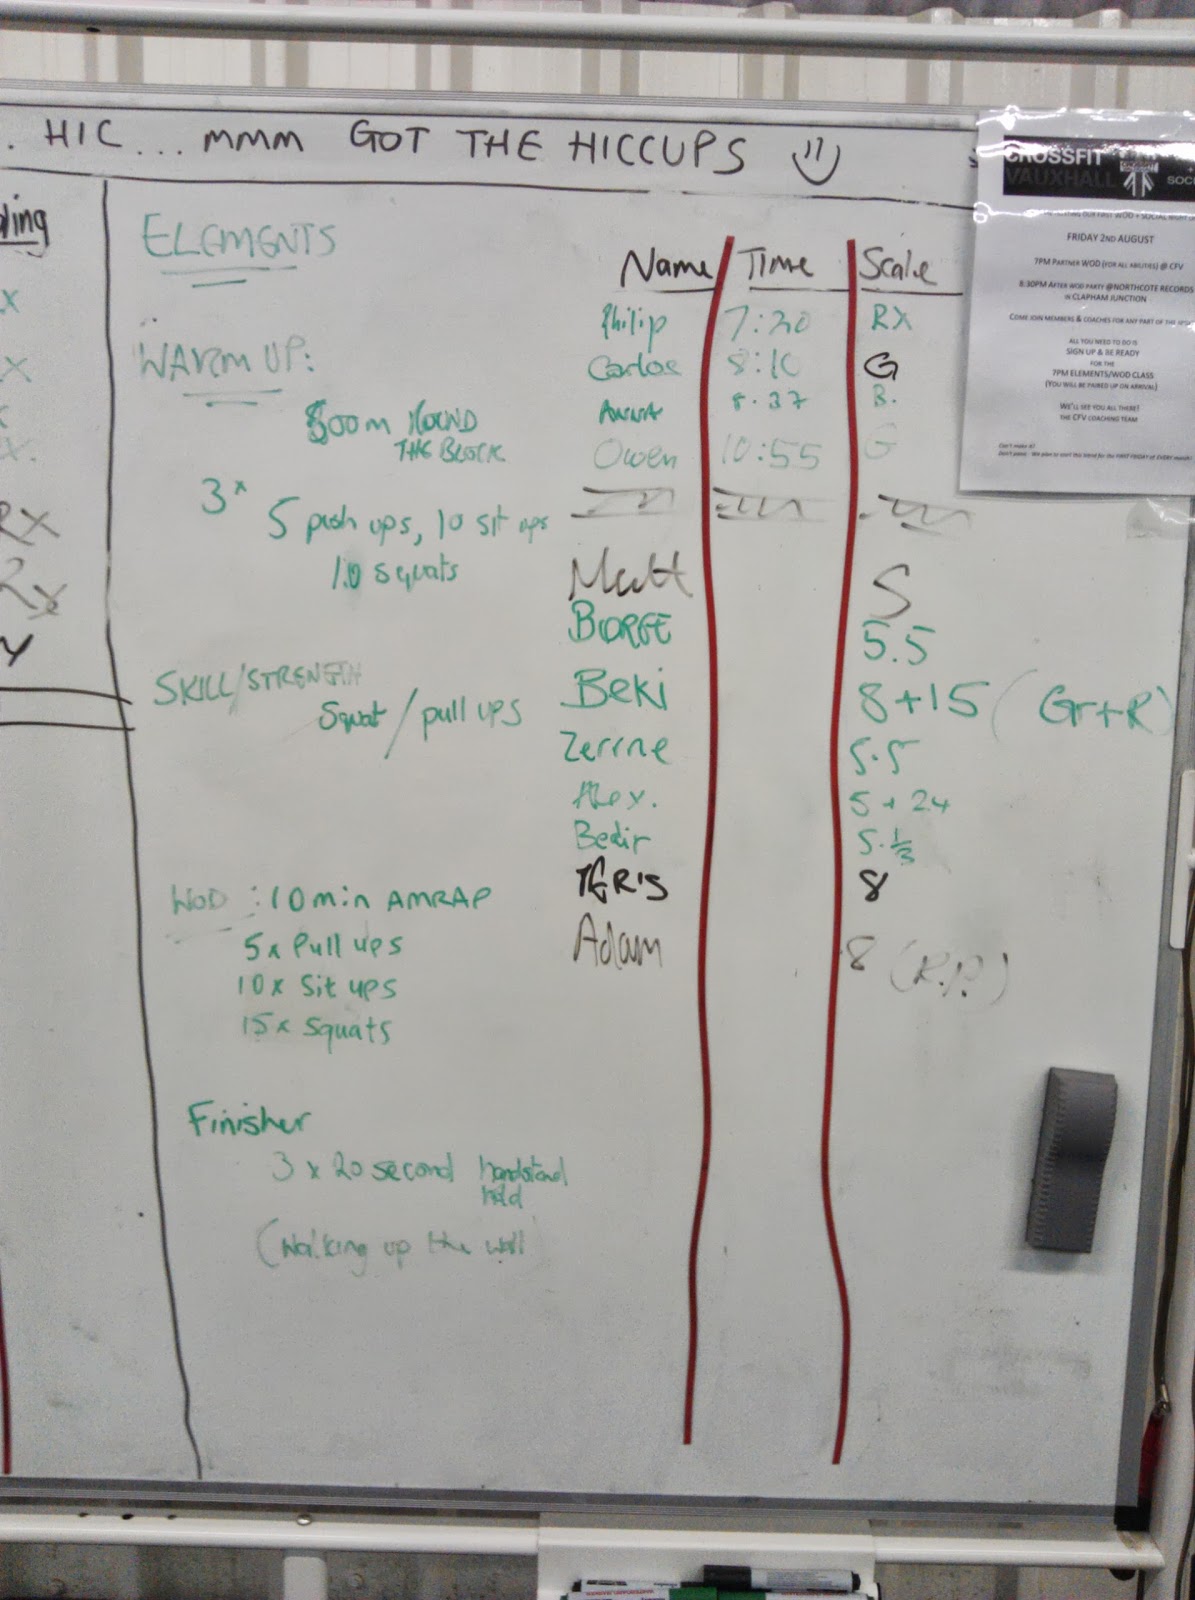 . HIC... MMM GOT THE HICCUPS
ELEMENTS
WARM UP:
500m ROUND
THE BLOCK
3x
5 push ups, 10 sit ups
10 squats
SKILL/STRENGTH
Squat / pull ups
WOD : 10 min AMRAP
5x Pull ups
10x Sit ups
15x Squats
Finisher
3 x 20 second handstand
hold
(Walking up the wall)
Name Time Scale
Philip 7:20 RX
Carlos 8:10 G
ANNA 8.37 B.
Owen 10:55 G
Matt S
BORGE 5.5
Beki 8+15 (Gr+R)
Zerrne 5.5
Alex. 5+24
Bedir 5.1/3
8
Adam 8 (R.P.)
ling
x
x
x.
RX
Rx
CROSSFIT
VAUXHALL
SOC
FRIDAY 2ND AUGUST
7PM PARTNER WOD (FOR ALL ABILITIES) @ CFV
8:30PM AFTER WOD PARTY @NORTHCOTE RECORDS
IN CLAPHAM JUNCTION
COME JOIN MEMBERS & COACHES FOR ANY PART OF THE
ALL YOU NEED TO DO IS
SIGN UP & BE READY
FOR THE
7PM ELEMENTS/WOD CLASS
(YOU WILL BE PAIRED UP ON ARRIVAL)
WE'LL SEE YOU ALL THERE!
THE CFV COACHING TEAM
Can't make it?
Don't panic - We plan to start this trend for the FIRST FRIDAY of EVERY month!